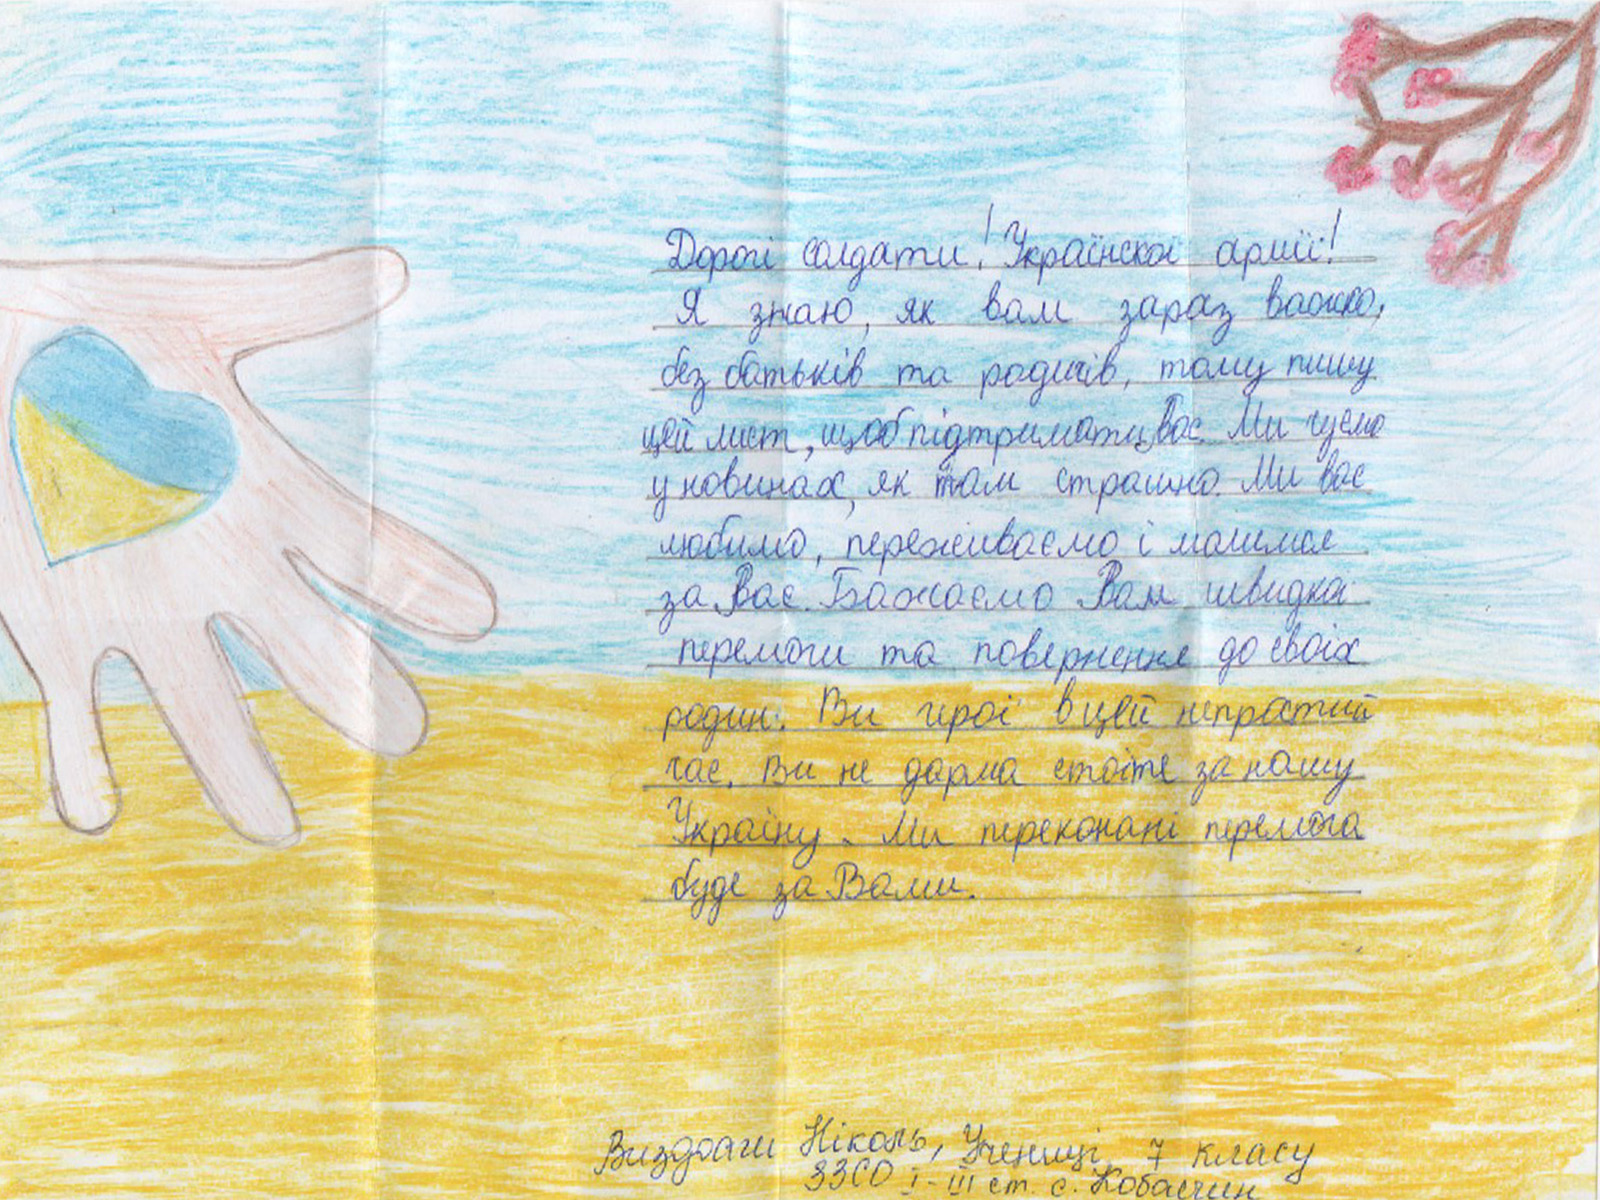 Дорогі солдати! Українскої армії!
Я знаю, як вам зараз важко,
без батьків та родичів, тому пишу
цей лист, щоб підтримати Вас. Ми чуємо
у новинах, як там страшно. Ми вас
любимо, переживаємо і молимся
за Вас. Бажаємо Вам швидкої
перемоги та повернення до своїх
родин. Ви герої в цей непростий
час. Ви не дарма стоїте за нашу
Україну. Ми переконані перемога
буде за Вами.
Ніколь, Учениці 7 класу
ЗЗСО І-ІІІ ст. с.